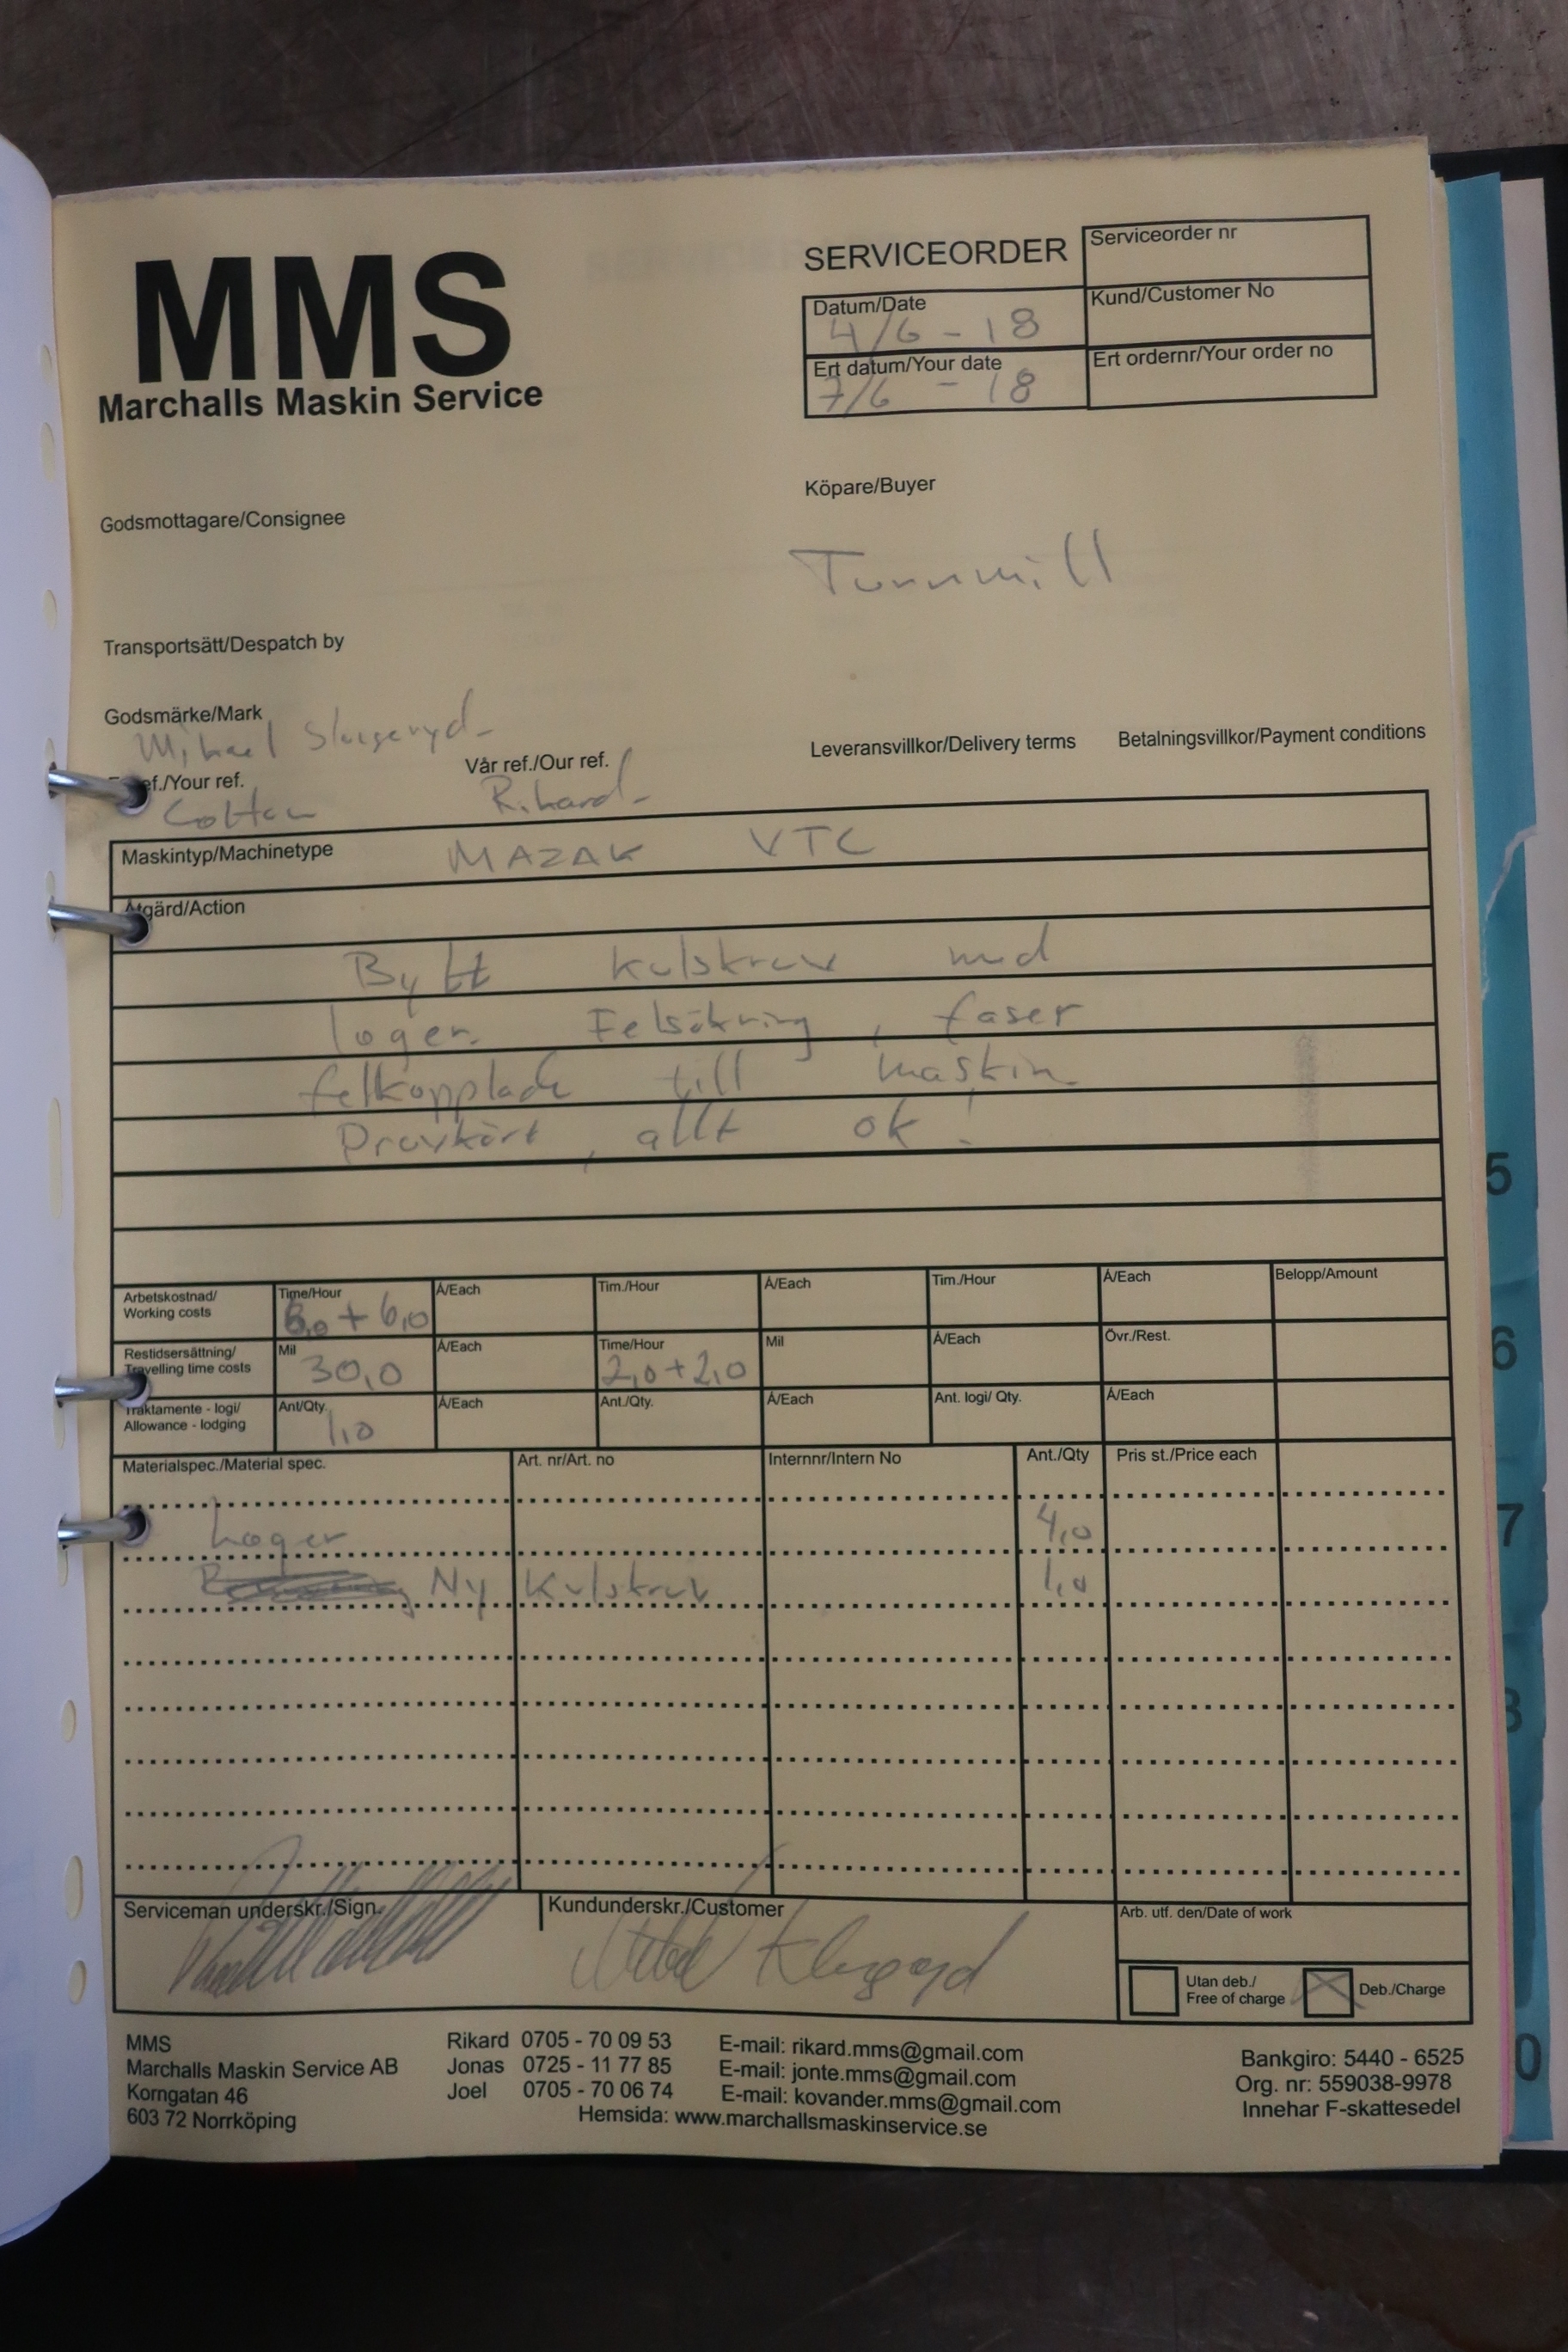 MMS
Marchalls Maskin Service
SERVICEORDER
Serviceorder nr
Datum/Date
4/6 - 18
Kund/Customer No
Ert datum/Your date
7/6 - 18
Ert ordernr/Your order no
Köpare/Buyer
Godsmottagare/Consignee
Turnmill
Transportsätt/Despatch by
Godsmärke/Mark
Mikael
Leveransvillkor/Delivery terms Betalningsvillkor/Payment conditions
ef./Your ref. Vår ref./Our ref.
Rikard
Maskintyp/Machinetype MAZAK VTC
Åtgärd/Action
Bytt kulskruv med
lager. Felsökning, faser
felkopplade till maskin.
Provkört, allt ok!
Arbetskostnad/ Time/Hour Á/Each Tim./Hour Á/Each Tim./Hour Á/Each Belopp/Amount
Working costs + 6,0
Restidsersättning/ Mil Á/Each Time/Hour Mil Á/Each Övr./Rest.
Travelling time costs 30,0 2,0+2,0
Traktamente - logi/ Ant/Qty. Á/Each Ant./Qty. Á/Each Ant. logi/ Qty. Á/Each
Allowance - lodging 1,0
Materialspec./Material spec. Art. nr/Art. no Internnr/Intern No Ant./Qty Pris st./Price each
Lager 4,0
Ny Kulskruv 1,0
Serviceman underskr./Sign. Kundunderskr./Customer Arb. utf. den/Date of work
Utan deb./
Free of charge
Deb./Charge
MMS
Marchalls Maskin Service AB
Korngatan 46
603 72 Norrköping
Rikard 0705 - 70 09 53 E-mail: rikard.mms@gmail.com
Jonas 0725 - 11 77 85 E-mail: jonte.mms@gmail.com
Joel 0705 - 70 06 74 E-mail: kovander.mms@gmail.com
Hemsida: www.marchallsmaskinservice.se
Bankgiro: 5440 - 6525
Org. nr: 559038-9978
Innehar F-skattesedel
5
6
7
8
0